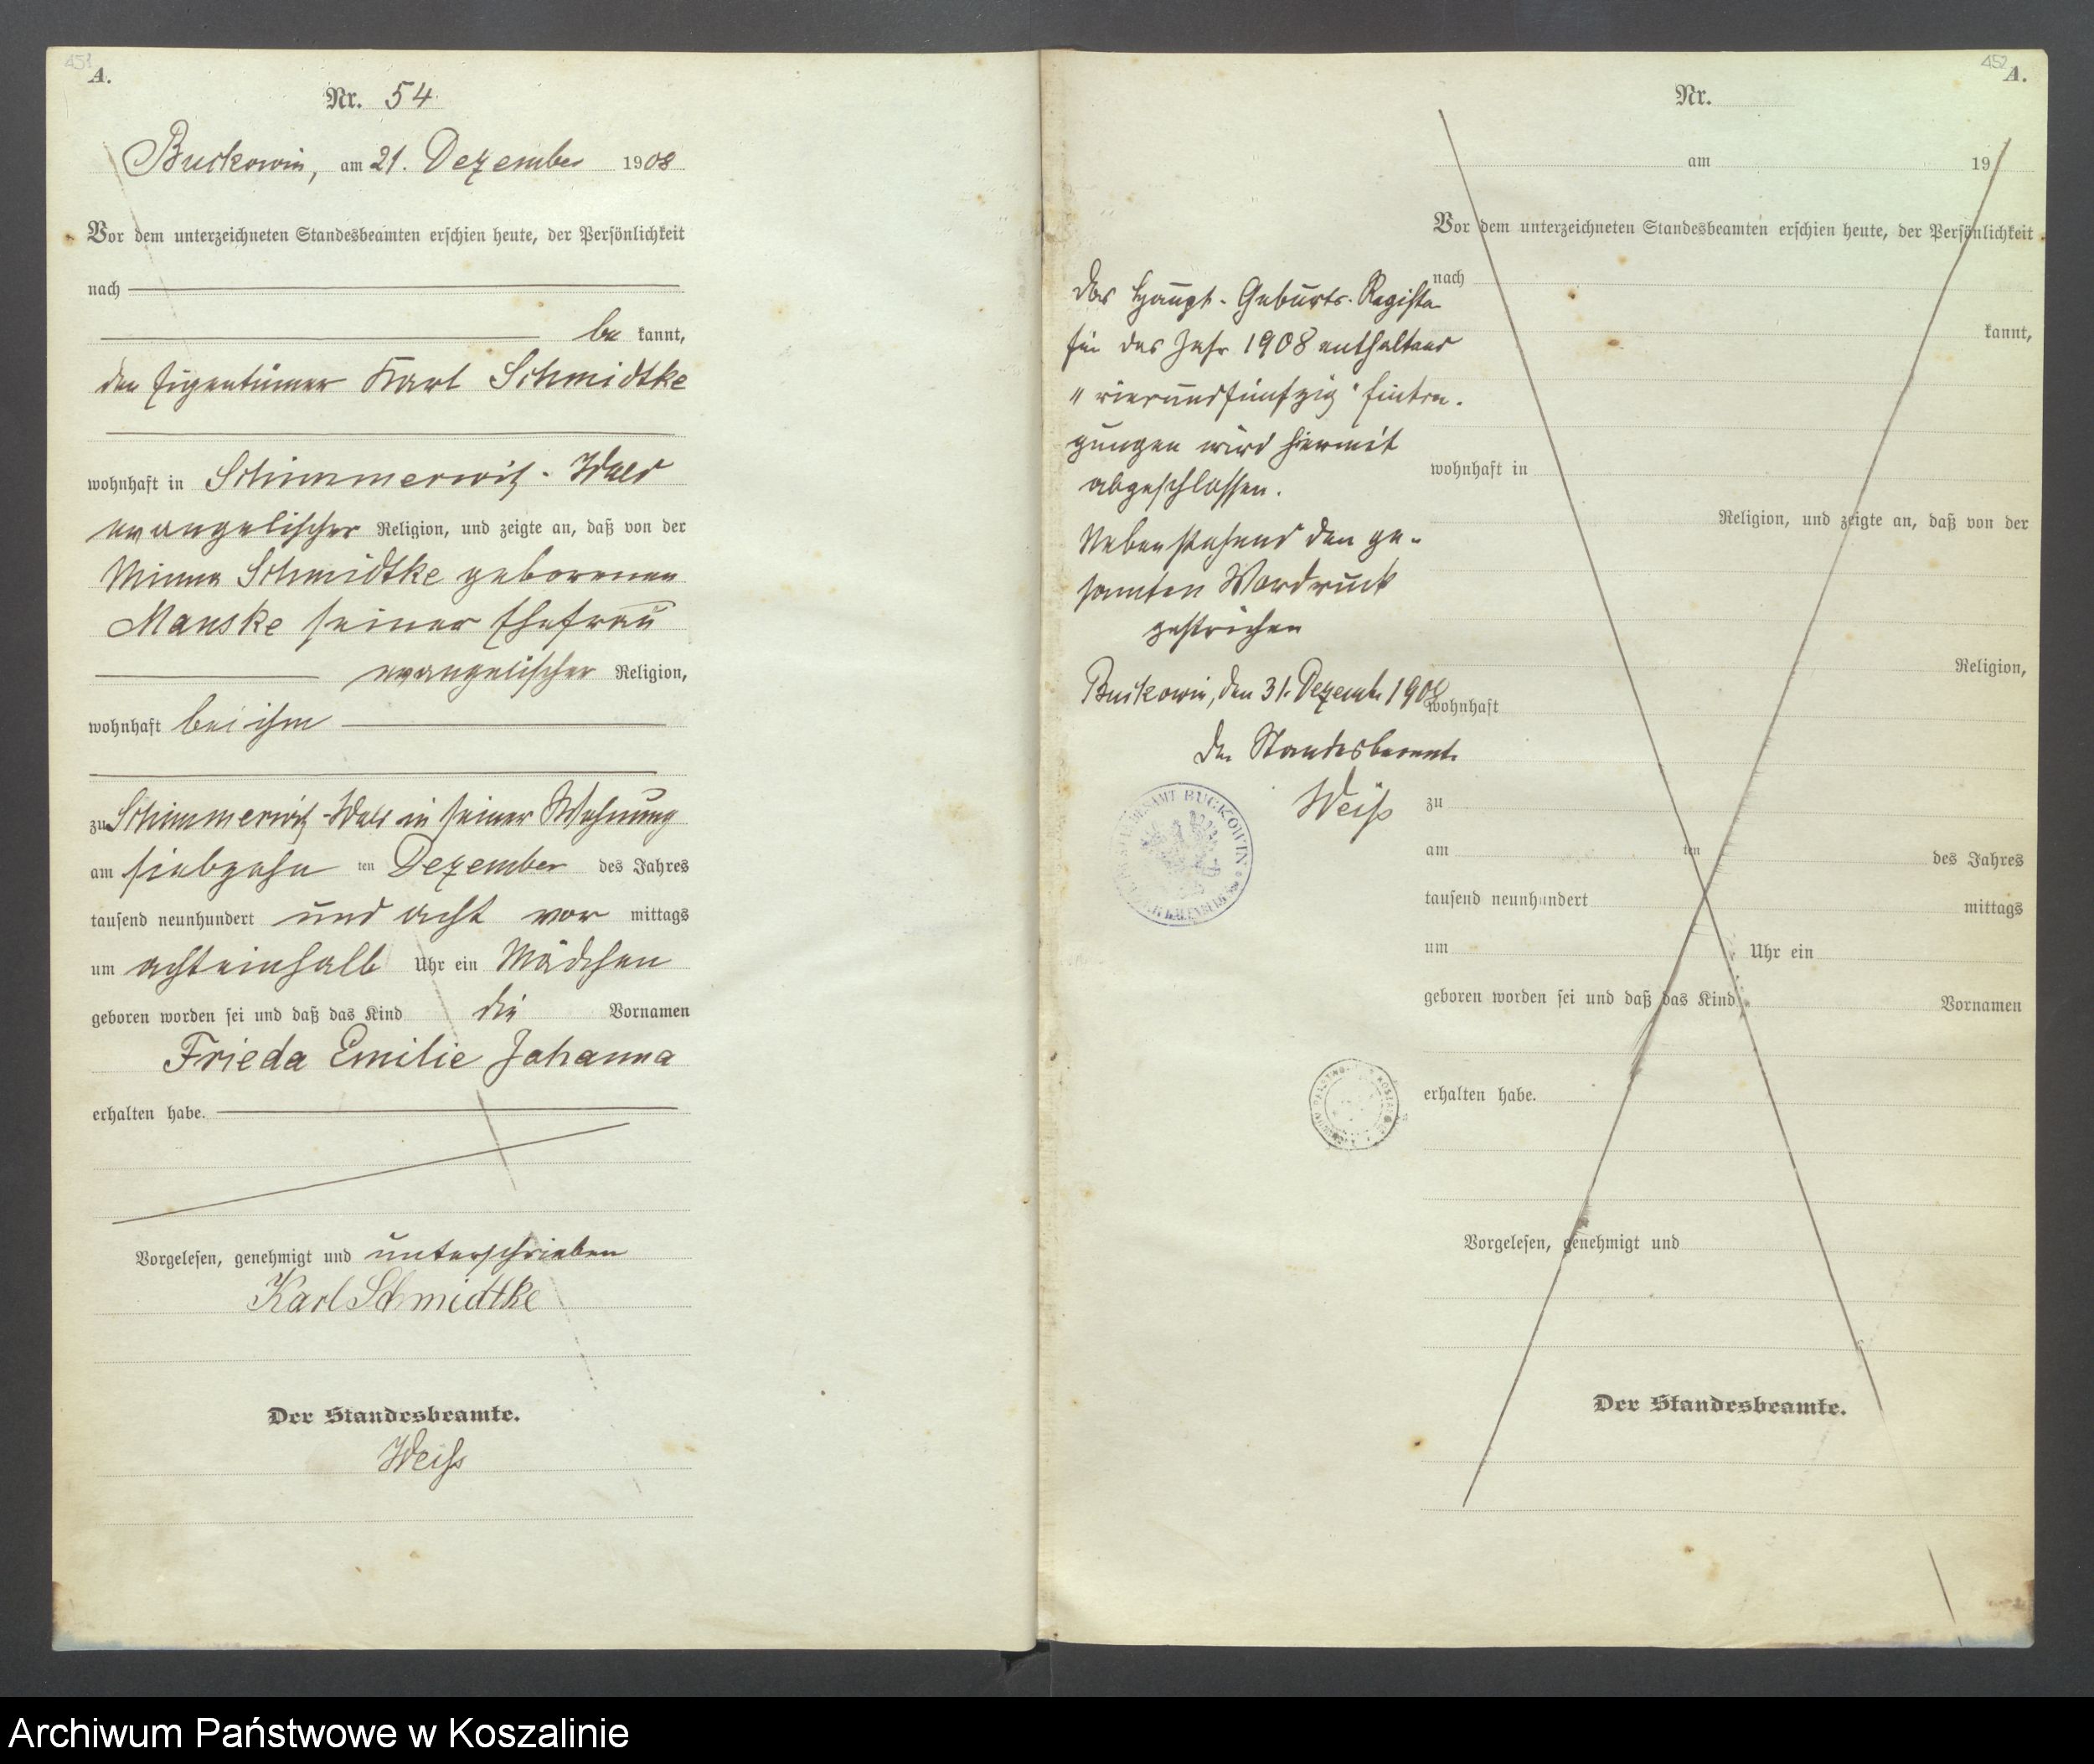 451
A.
Nr. 54
Buckowin, am 21. Dezember 1908
Vor dem unterzeichneten Standesbeamten erschien heute, der Persönlichkeit
nach
be kannt,
der Eigentümer Karl Schmidtke
wohnhaft in Schimmerwitz-Wald
evangelischer Religion, und zeigte an, daß von der
Minna Schmidtke geborenen
Manske seiner Ehefrau
evangelischer Religion,
wohnhaft bei ihm
zu Schimmerwitz-Wald in seiner Wohnung
am siebzehn ten Dezember des Jahres
tausend neunhundert und acht vor mittags
um achteinhalb Uhr ein Mädchen
geboren worden sei und daß das Kind die Vornamen
Frieda Emilie Johanna
erhalten habe.
Vorgelesen, genehmigt und unterschrieben
Karl Schmidtke
Der Standesbeamte.
Weiß
452
A.
Nr.
am 19
Vor dem unterzeichneten Standesbeamten erschien heute, der Persönlichkeit
nach
kannt,
wohnhaft in
Religion, und zeigte an, daß von der
Religion,
wohnhaft
zu
am ten des Jahres
tausend neunhundert mittags
um Uhr ein
geboren worden sei und daß das Kind Vornamen
erhalten habe.
Vorgelesen, genehmigt und
Der Standesbeamte.
Das Haupt-Geburts-Register
für das Jahr 1908 enthaltend
"vierundfünfzig" Eintra-
gungen wird hiermit
abgeschlossen.
Nebenstehend den ge-
samten Vordruck
gestrichen
Buckowin, den 31. Dezember 1908
Der Standesbeamte
Weiß
STANDESAMT BUCKOWIN
Archiwum Państwowe w Koszalinie